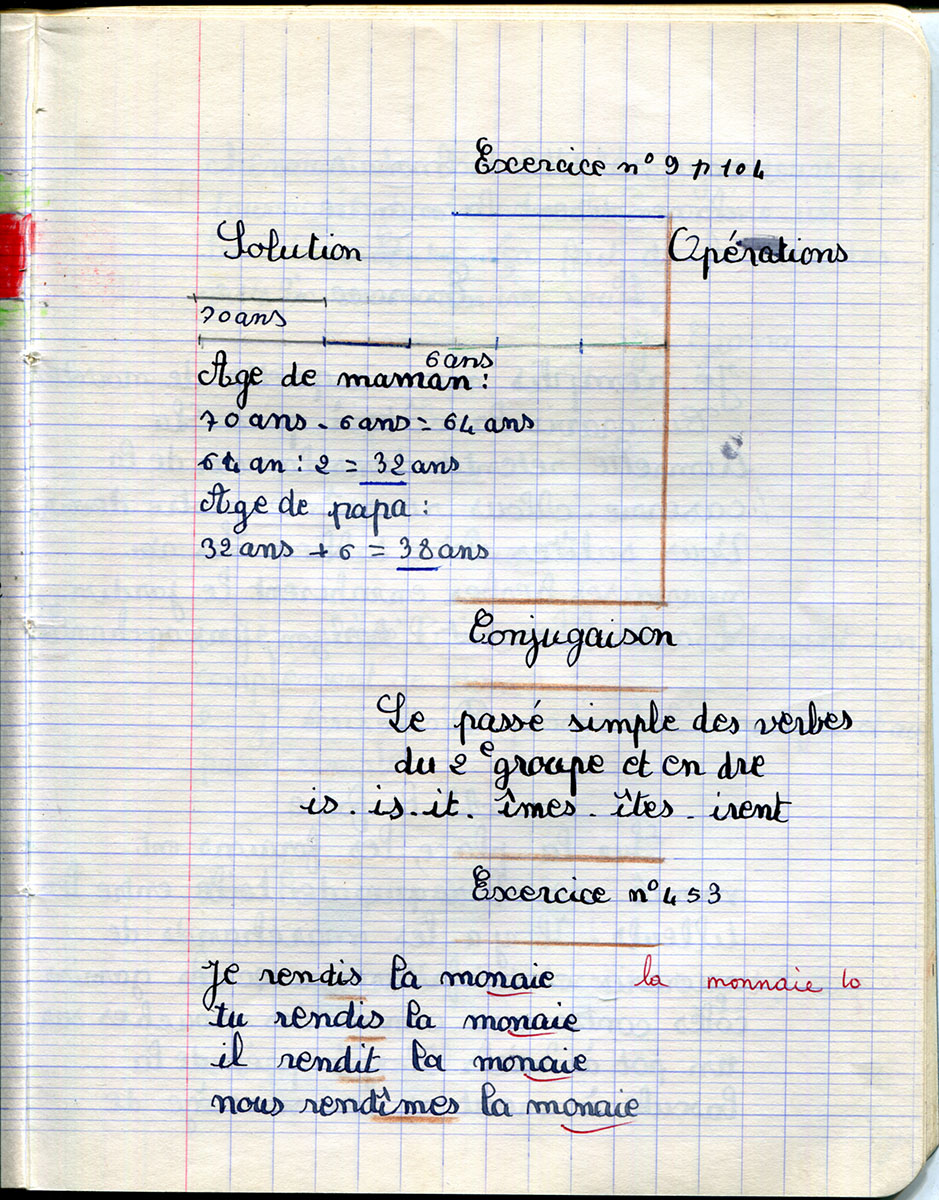 Exercice n° 9 p 104
Solution
Opérations
70 ans
6 ans
Age de maman :
70 ans - 6 ans = 64 ans
64 an : 2 = 32 ans
Age de papa :
32 ans + 6 = 38 ans
Conjugaison
Le passé simple des verbes
du 2e groupe et en dre
is . is . it . îmes . îtes . irent
Exercice n° 453
Je rendis la monaie la monnaie 10
tu rendis la monaie
il rendit la monaie
nous rendîmes la monaie